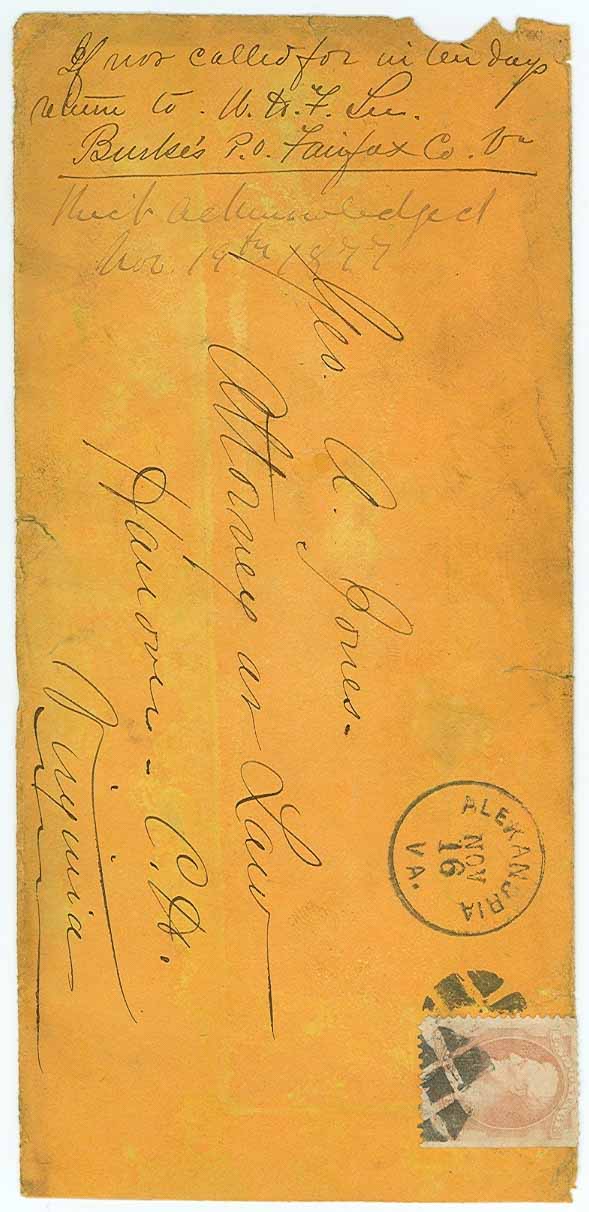 If not called for in ten days
return to W. H. F. Lee.
Burke's P.O. Fairfax Co. Va
acknowledged
Nov. 19th 1877
Geo. A. Jones.
Attorney at Law
Hanover C. H.
Virginia
ALEXANDRIA
NOV
16
VA.